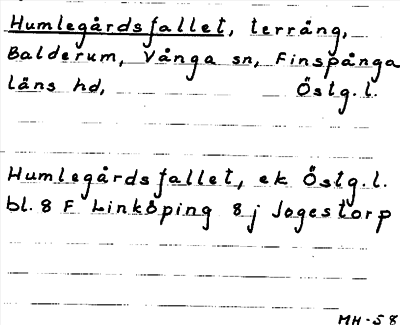 Humlegårdsfallet, terräng,
Balderum, Vånga sn, Finspånga
läns hd, Östg.l.
Humlegårdsfallet, ek Östg.l.
bl. 8 F Linköping 8 j Jogestorp
MH-58